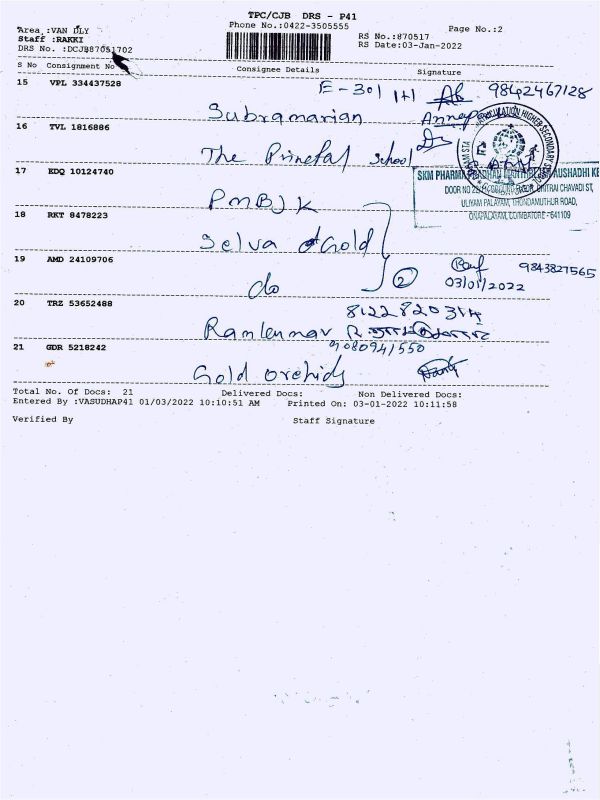 TPC/CJB DRS - P41
Phone No.:0422-3505555
Page No.:2
Area :VAN DLY
Staff :RAKKI
DRS No. :DCJB87051702
RS No.:870517
RS Date:03-Jan-2022
S No Consignment No Consignee Details Signature
E-301 9842467128
15 VPL 334437528
Subramanian
16 TVL 1816886
The Principal School
17 EDQ 10124740
PMBJK
SKM PHARMA
ULIYAM PALAYAM, THONDAMUTHUR ROAD,
18 RKT 8478223
Selva Gold
19 AMD 24109706
do 2 03/01/2022 9843827565
20 TRZ 53652488
8122820314
Ramkumar
21 GDR 5218242
9080941550
Gold orchids
Total No. Of Docs: 21 Delivered Docs: Non Delivered Docs:
Entered By :VASUDHAP41 01/03/2022 10:10:51 AM Printed On: 03-01-2022 10:11:58
Verified By Staff Signature